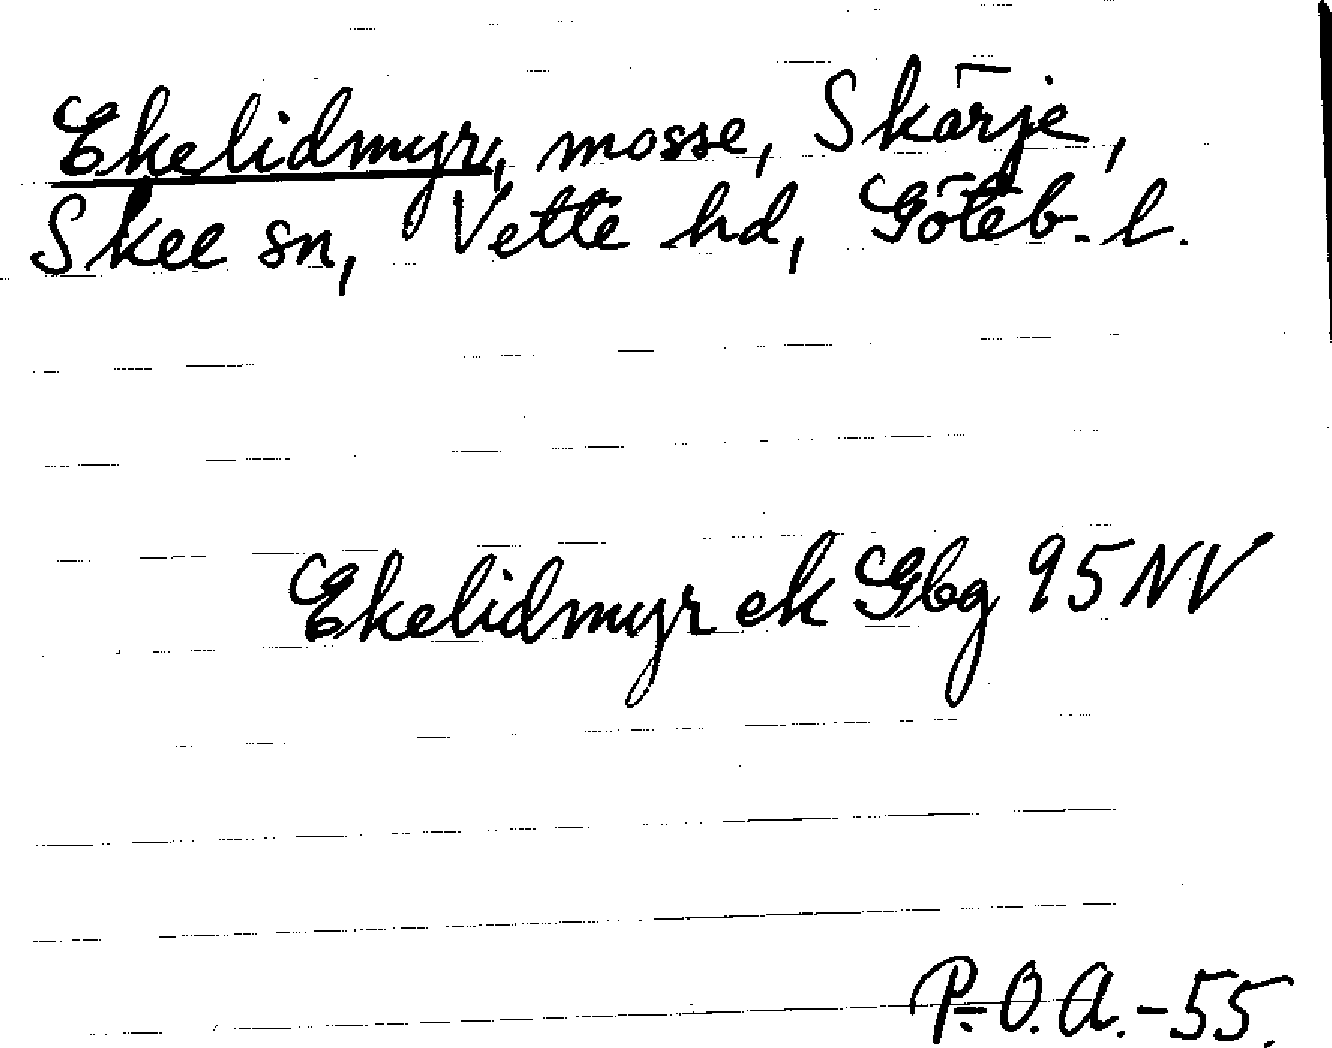 Ekelidmyr, mosse, Skärje,
Skee sn, Vette hd, Göteb. l.
Ekelidmyr ek Gbg 95 NV
P.-O. A. -55.